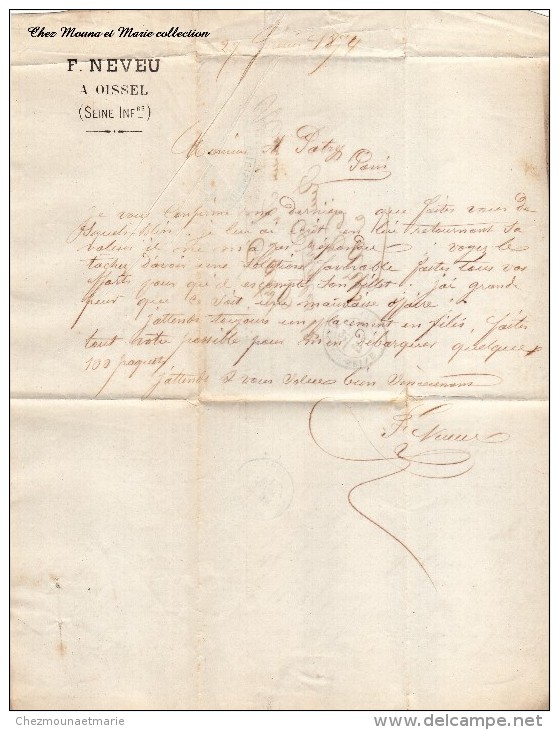 Chez Mouna et Marie collection
F. NEVEU
A OISSEL
(SEINE INFRE)
27 1874
Monsieur A Patry
Paris
je vous confirme ma dernière, que faites vous de
je leur ai écrit en leur retournant sa
valeur il ne m'a pas répondu voyez le
tachez d'avoir une solution favorable faites tous vos
efforts pour que il escompte son billet j'ai grande
peur que ce soit une mauvaise affaire
j'attends toujours un placement en filés, faites
tout votre possible pour m'en débarquer quelque
100 paquets
J'attends & vous salue bien sincèrement
F. Neveu
Chezmounaetmarie
delcampe.net